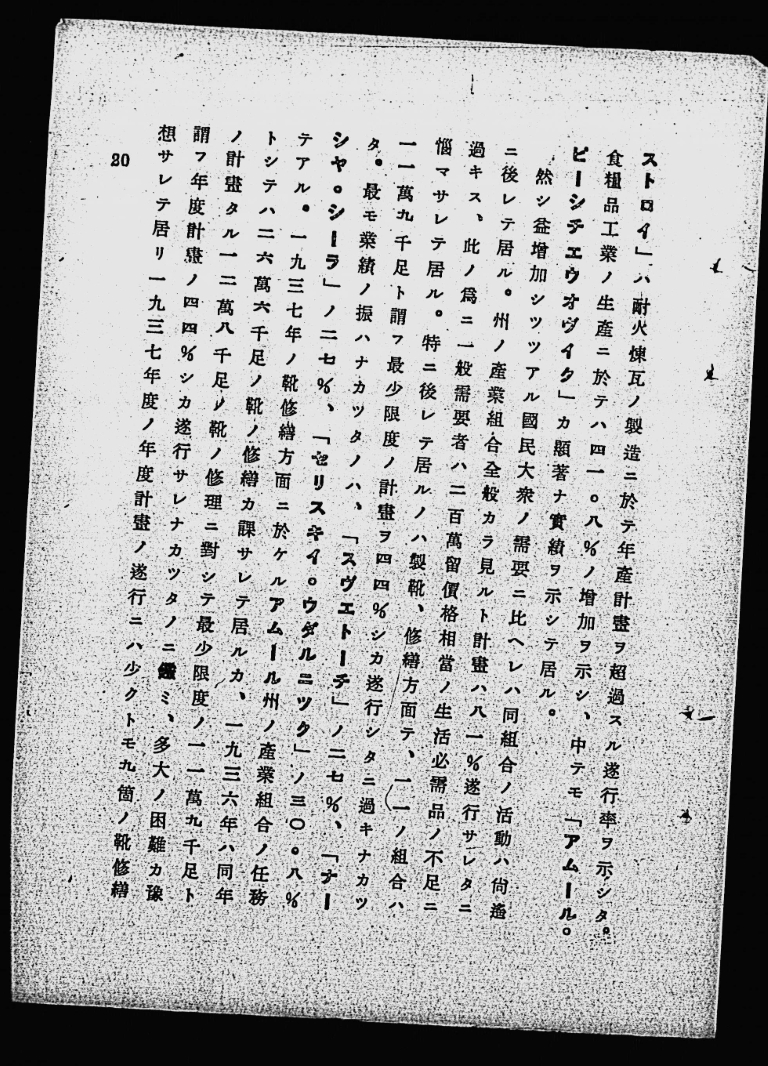 ストロイ」ハ耐火煉瓦ノ製造ニ於テ年產計畫ヲ超過スル遂行率ヲ示シタ。
食糧品工業ノ生產ニ於テハ四一。八%ノ增加ヲ示シ、中テモ「アムール。
ピーシチエウオヴイク」カ顯著ナ實績ヲ示シテ居ル。
然シ益增加シツツアル國民大衆ノ需要ニ比ヘレハ同組合ノ活動ハ尙遙
ニ後レテ居ル。州ノ產業組合全般カラ見ルト計畫ハ八一%遂行サレタニ
過キス、此ノ爲ニ一般需要者ハ二百萬留價格相當ノ生活必需品ノ不足ニ
惱マサレテ居ル。特ニ後レテ居ルノハ製靴、修繕方面テ、一一ノ組合ハ
一一萬九千足ト謂フ最少限度ノ計畫ヲ四四%シカ遂行シタニ過キナカツ
タ。最モ業績ノ振ハナカツタノハ、「スヴエトーチ」ノ二七%、「ナー
シヤ。シーラ」ノ二七%、「セリスキイ。ウダルニツク」ノ三〇。八%
テアル。一九三七年ノ靴修繕方面ニ於ケルアムール州ノ產業組合ノ任務
トシテハ二六萬六千足ノ靴ノ修繕カ課サレテ居ルカ、一九三六年ハ同年
ノ計畫タル一二萬八千足ノ靴ノ修理ニ對シテ最少限度ノ一一萬九千足ト
謂フ年度計畫ノ四四%シカ遂行サレナカツタノニ鑑ミ、多大ノ困難カ豫
想サレテ居リ一九三七年度ノ年度計畫ノ遂行ニハ少クトモ九箇ノ靴修繕
20